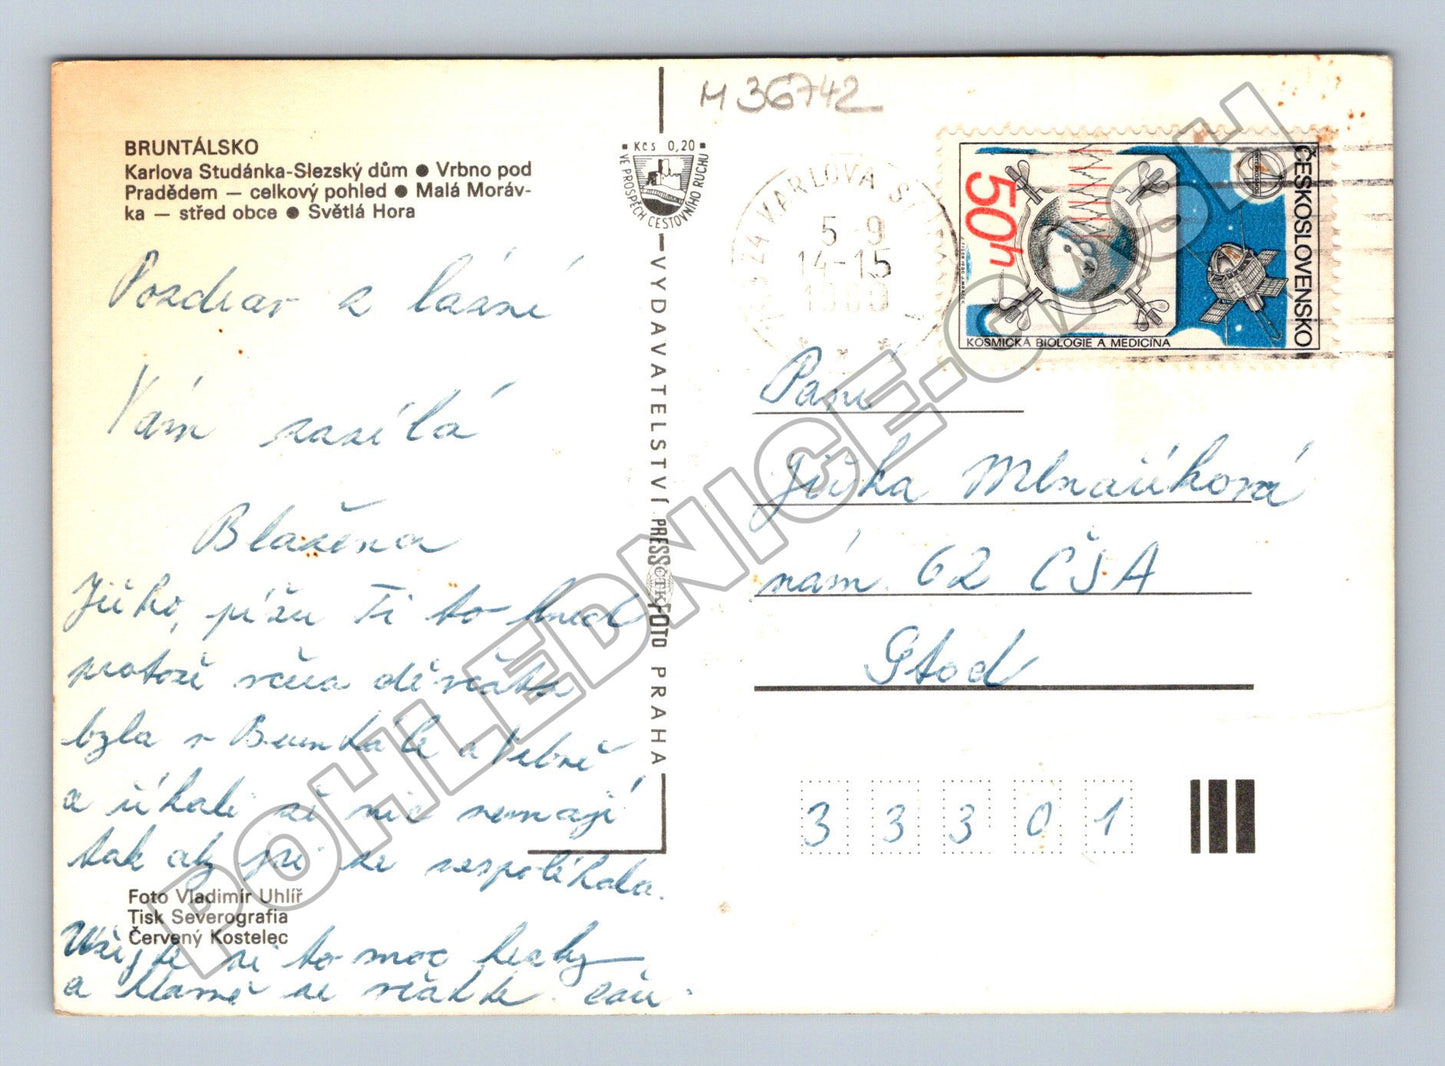 BRUNTÁLSKO
Karlova Studánka-Slezský dům ● Vrbno pod
Pradědem — celkový pohled ● Malá Moráv-
ka — střed obce ● Světlá Hora
Pozdrav z lázní
Vám zasílá
Blažena
Jiťko, píšu Ti to hned
protože včera děvčata
byla v Bruntále a Vrbně
a říkali že nic nemají
tak aby jsi se nespoléhala.
Foto Vladimír Uhlíř
Tisk Severografia
Červený Kostelec
Užijte si to moc hezky
a hlavně se vraťte. čau.
M 36742
Kčs 0,20
VE PROSPĚCH CESTOVNÍHO RUCHU
VYDAVATELSTVÍ PRESSFOTO PRAHA
ČTK
KARLOVA ST
5 9
14-15
50h
ČESKOSLOVENSKO
KOSMICKÁ BIOLOGIE A MEDICÍNA
Paní
Jiťka Mlnaříková
nám. 62 ČSA
Stod
3 3 3 0 1
POHLEDNICE.CASH